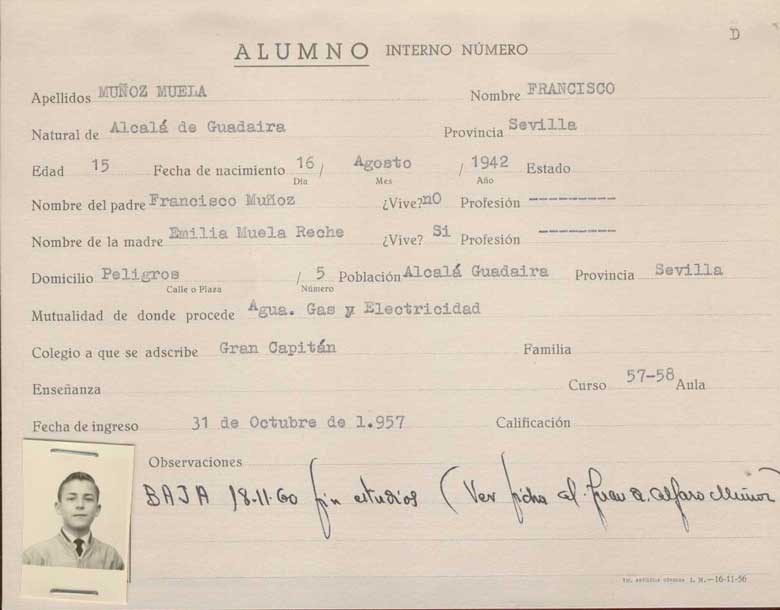 D
ALUMNO INTERNO NÚMERO
Apellidos MUÑOZ MUELA Nombre FRANCISCO
Natural de Alcalá de Guadaira Provincia Sevilla
Edad 15 Fecha de nacimiento 16 / Agosto / 1942 Estado
Día Mes Año
Nombre del padre Francisco Muñoz ¿Vive? no Profesión -------
Nombre de la madre Emilia Muela Reche ¿Vive? Si Profesión -------
Domicilio Peligros / 5 Población Alcalá Guadaira Provincia Sevilla
Calle o Plaza Número
Mutualidad de donde procede Agua. Gas y Electricidad
Colegio a que se adscribe Gran Capitán Familia
Enseñanza Curso 57-58 Aula
Fecha de ingreso 31 de Octubre de 1.957 Calificación
Observaciones
BAJA 18-11-60 fin estudios (Ver ficha al. Alfaro Muñoz
16-11-56